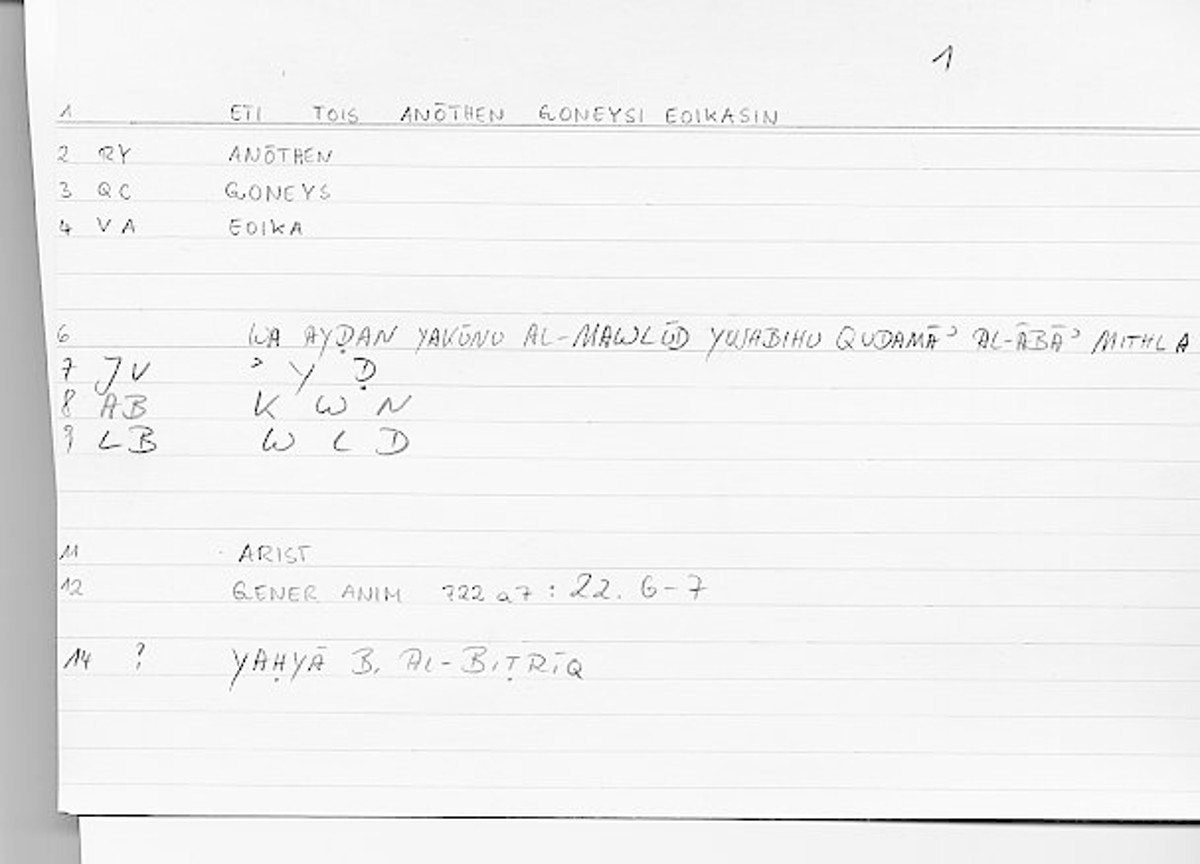 1
1 ETI TOIS ANŌTHEN GONEYSI EOIKASIN
2 RY ANŌTHEN
3 QC GONEYS
4 VA EOIKA
6 WA AYḌAN YAKŪNU AL-MAWLŪD YUŠABIHU QUDAMĀʾ AL-ĀBĀʾ MITHLA
7 JV ʾ Y Ḍ
8 AB K W N
9 LB W L D
11 ARIST
12 GENER ANIM 722a7 : 22. 6-7
14 ? YAḤYĀ B. AL-BIṬRĪQ